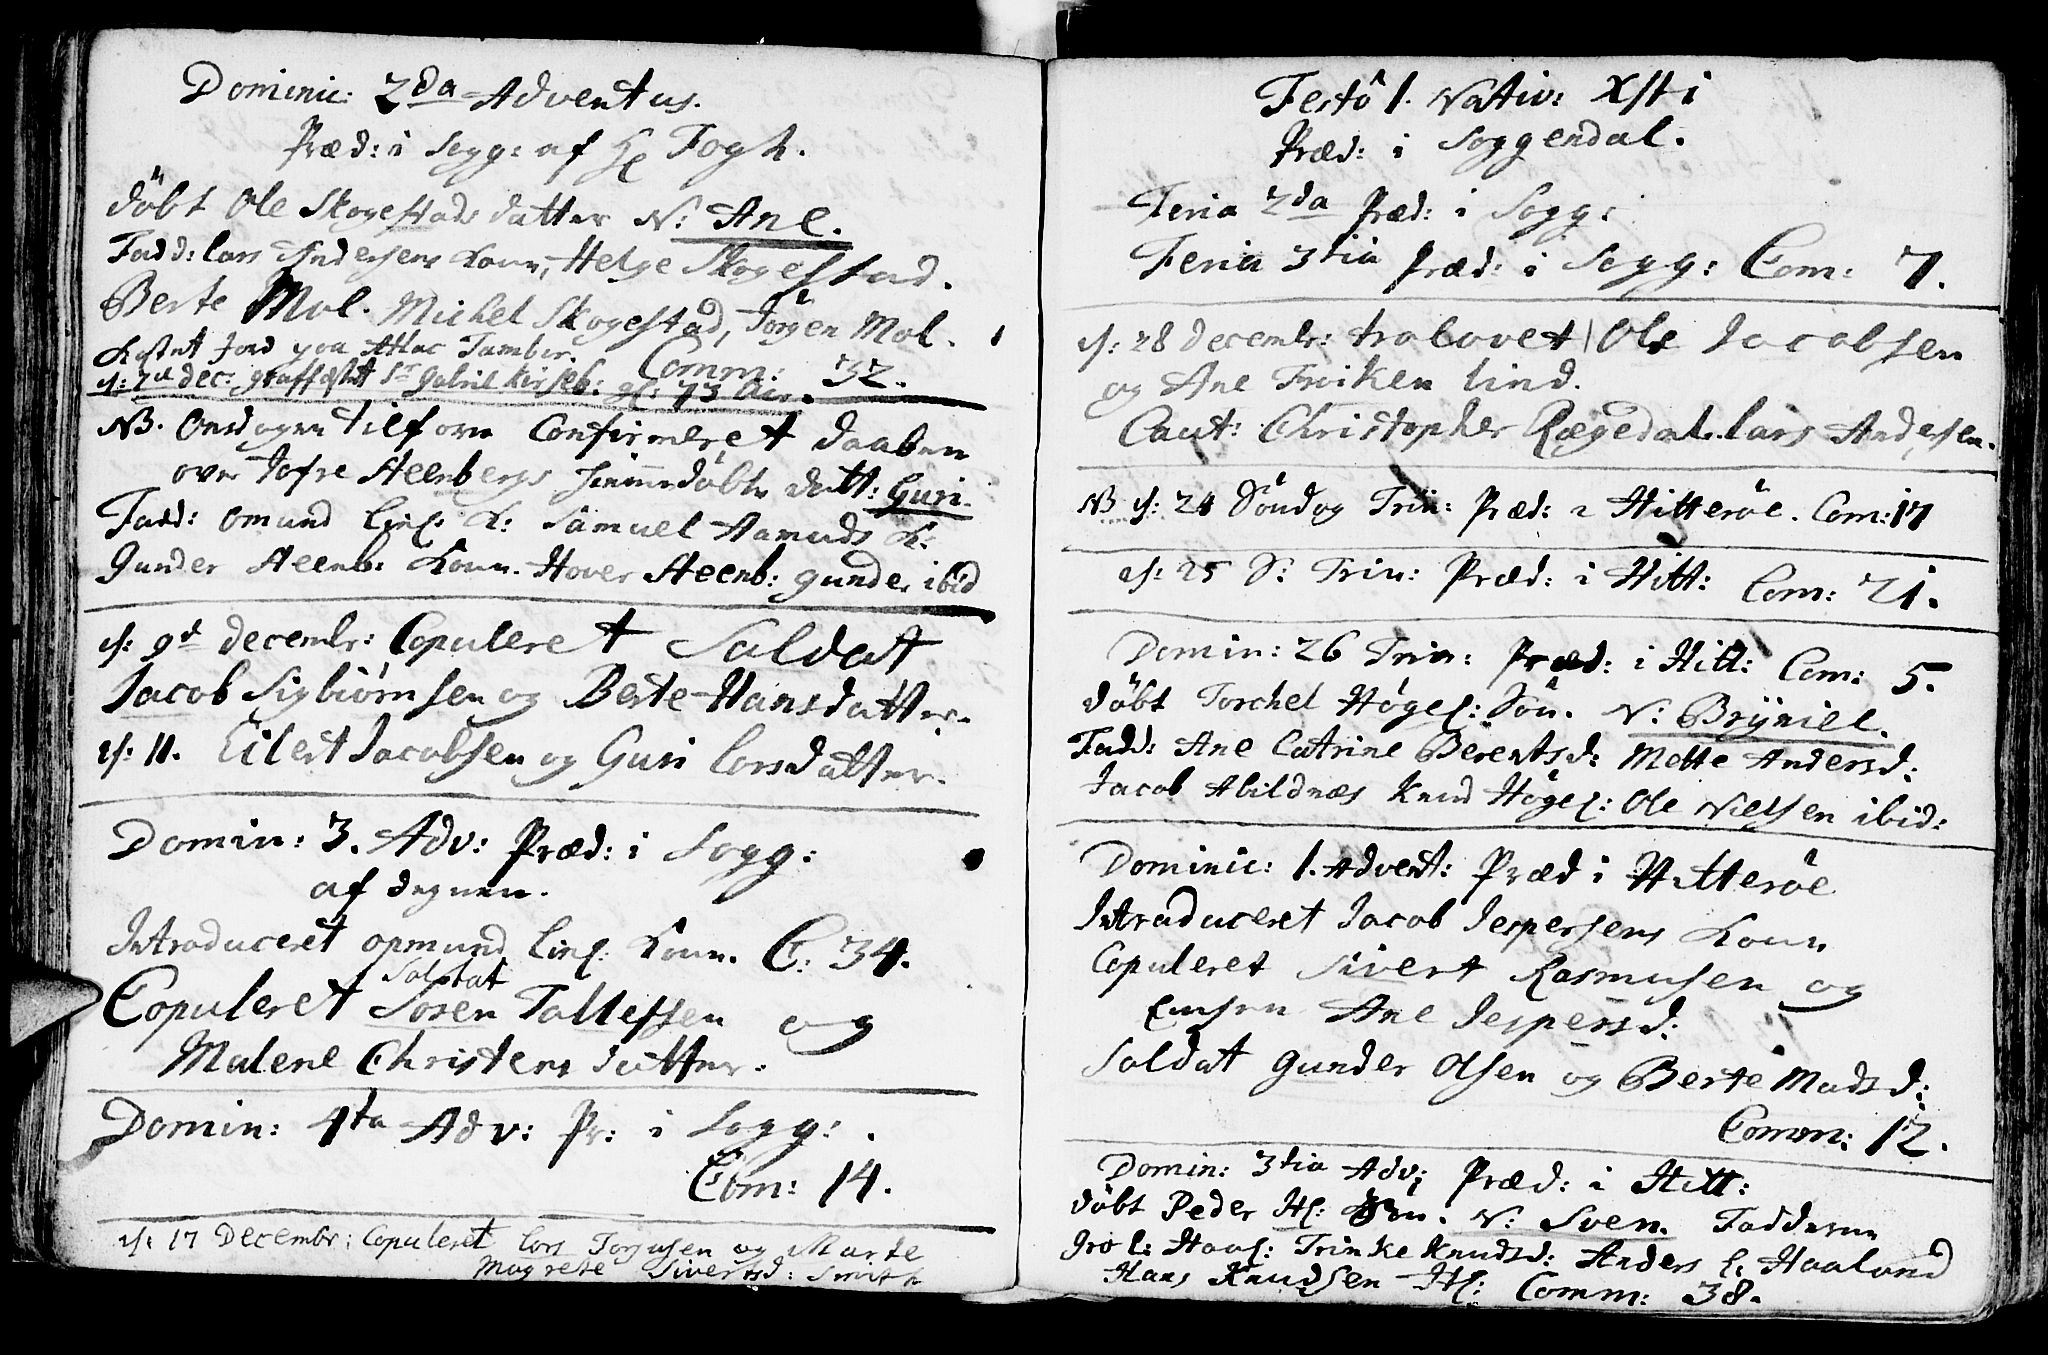 Dominic: 2da Adventus.
Præd: i Sogg: af Hr Fogh.
döbt Ole Skogestads datter N: Ane.
Fadd: Lars Andersens Kone, Helge Skogestad.
Berte Mol. Michel Skogestad, Jörgen Mol.
Kastet Jord paa Atlac
Comm: 32.
d: 2den dec: Gabriel Kirseb: gl: 73 Aar.
NB. Onsdagen tilforn Confirmeret daaben
over Tosre Steenbergs hiemmedöbte datt: Guri.
Fadd: Omund Linl: K: Samuel Aamuds K:
Gunder Steenb: Kone. Hover Steenb: gunder ibid
d: 9d decembr: Copuleret Saldat
Jacob Sigbiörnsen og Berte Hansdatter.
d: 11. Eilert Jacobsen og Guri Lorsdatter.
Domin: 3. Adv: Præd: i Sogg:
af degnen.
Introduceret opmund Linl: Kone. C: 34.
Saldat
Copuleret Soren Tallefsen og
Malene Christens datter.
Domin: 4ta Adv: Pr: i Sogg:
Com: 14.
d: 17 Decembr: Copuleret Lors Torjusen og Marte
Magrete Sivertsd: Smith
Festo 1. Nativ: Xsti
Præd: i Soggendal.
Feria 2da Præd: i Sogg:
Feria 3tia Præd: i Sogg: Com: 7.
d: 28 decembr: trolovet Ole Jacobsen
og Ane Friken Lind.
Caut: Christopher Rægedal. Lars Andersen.
NB d: 24 Söndag Trin: Præd: i Hitteröe. Com: 17
d: 25 S: Trin: Præd: i Hitt: Com: 21.
Domin: 26 Trin: Præd: i Hitt: Com: 5.
döbt Torchel Högel: Sön. N: Brÿniel.
Fadd: Ane Catrine Berentsd: Mette Andersd:
Jacob Abildnæs Knud Högel: Ole Nielsen ibid:
Dominic: 1. Advent: Præd i Hitteröe
Introduceret Jacob Jespersens Kone
Copuleret Sivert Rasmusen og
Ane Jespersd:
Soldat Gunder Olsen og Berte Madsd:
Comm: 12.
Domin: 3tia Adv: Præd: i Hitt:
döbt Peder Hl: Sön. N: Sven. Fadderne
Gro L: Haal: Trinke Knudsd: Anders L: Haaland
Hans Knudsen Hl: Comm: 38.